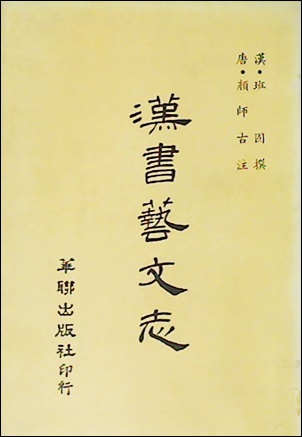 漢・班固撰
唐・顏師古註
漢書藝文志
華聯出版社印行